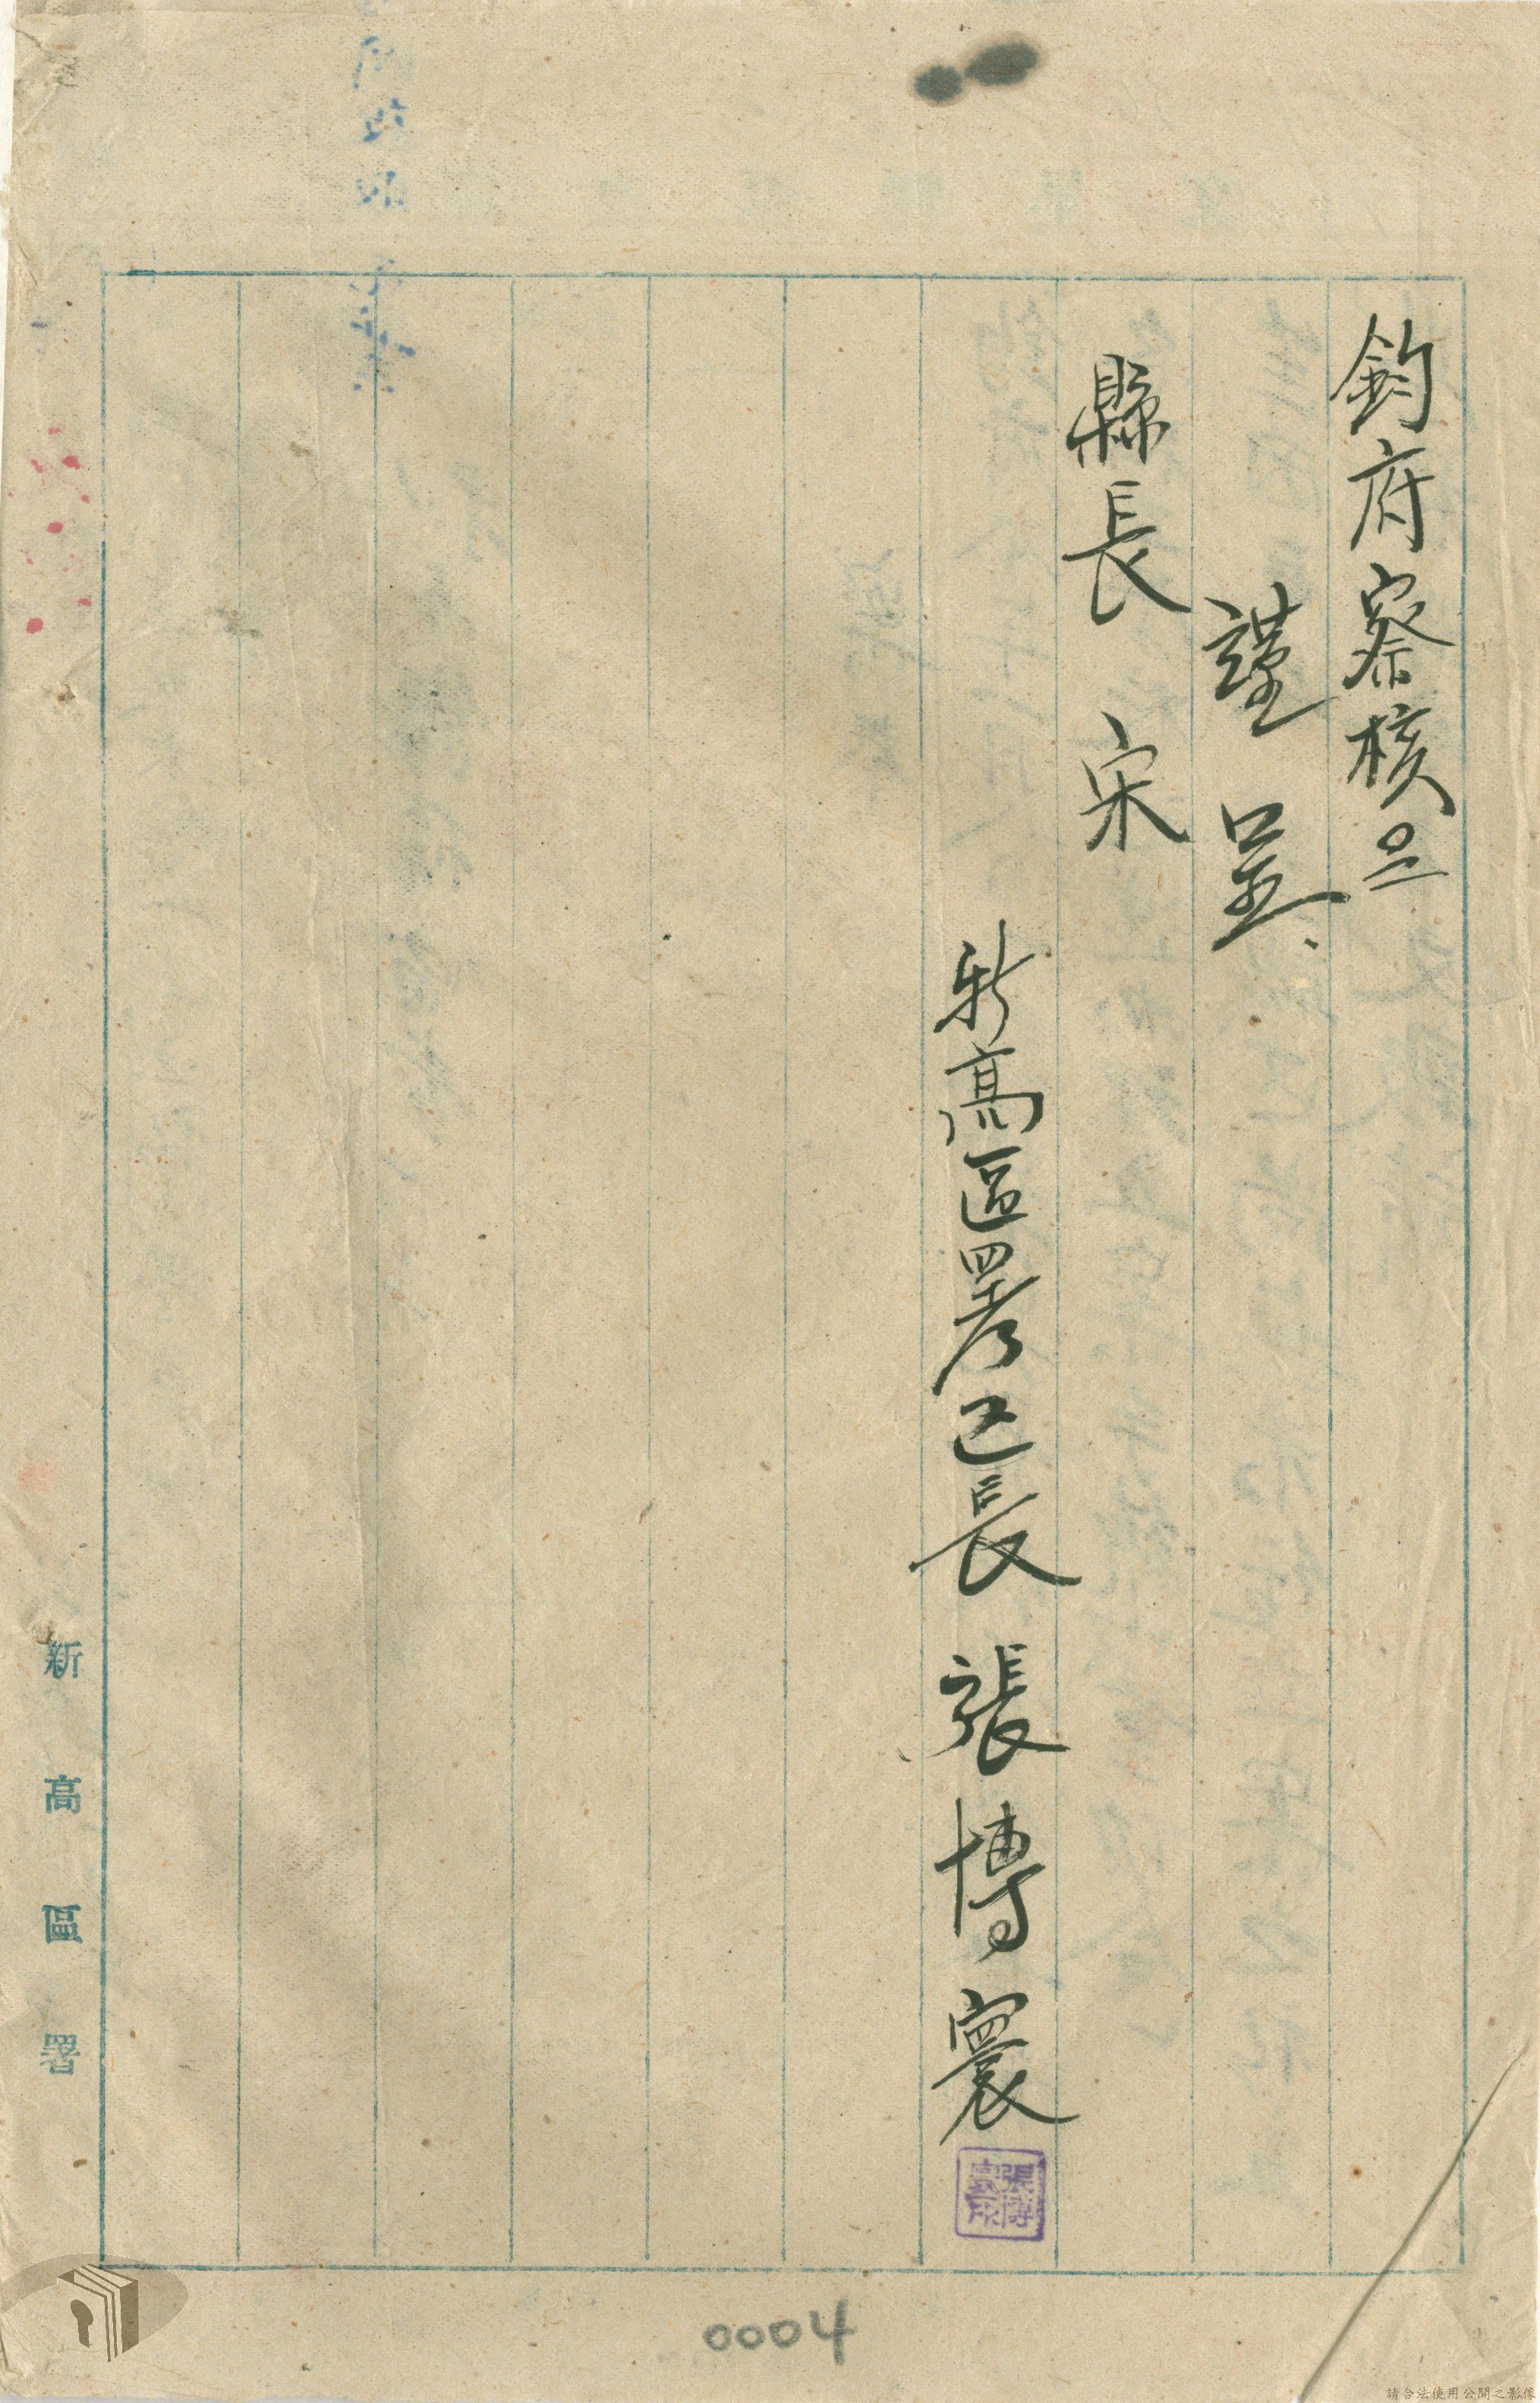 鈞府察核㫖
謹呈、
縣長　宋
新高區署区長　張博寰
張博寰印
新高區署
0004
請合法使用公開之影像